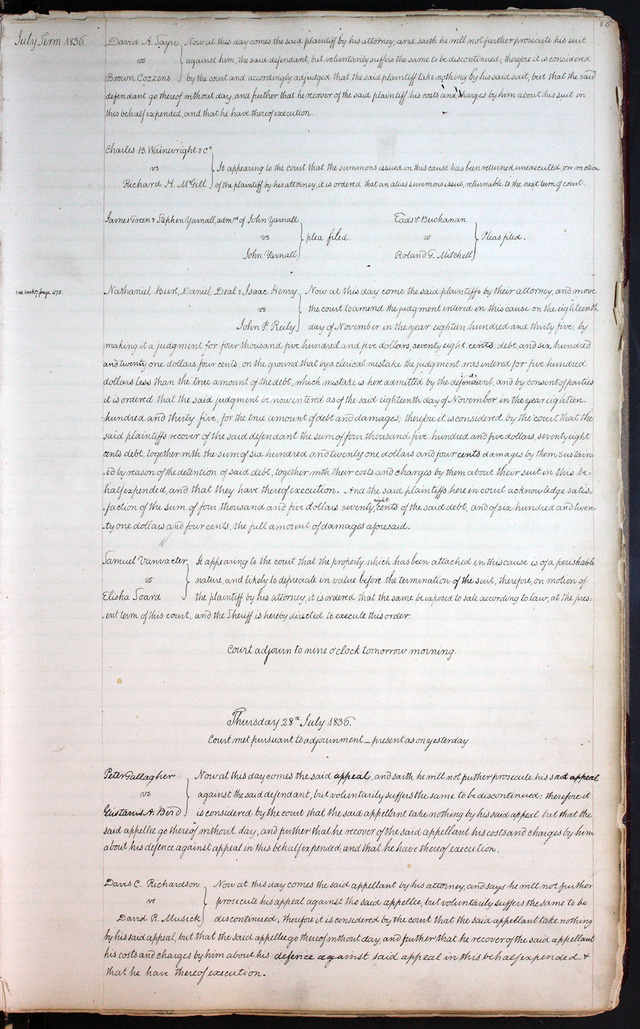 July Term 1836.
David A. Sayre
vs
Brown Cozzens
Now at this day comes the said plaintiff by his attorney, and saith he will not further prosecute his suit
against him, the said defendant, but voluntarily suffers the same to be discontinued; therefore it is considered
by the court and accordingly adjudged that the said plaintiff take nothing by his said suit, but that the said
defendant go thereof without day, and further that he recover of the said plaintiff his costs and charges by him about his suit in
this behalf expended, and that he have thereof execution.
Charles B. Wainwright & Co.
vs
Richard H. McGill
It appearing to the court that the summons issued in this cause has been returned unexecuted, on motion
of the plaintiff by his attorney, it is ordered that an alias summons issue, returnable to the next term of court.
James Green & Stephen Yarnall, admrs of John Yarnall
vs
John Yarnall
plea filed.
Eads & Buchanan
vs
Roland G. Mitchell
Pleas filed.
Nathaniel Burt, Daniel Deal & Isaac Henry
vs
John P. Reily
Now at this day come the said plaintiffs by their attorney, and move
the court to amend the judgment entered in this cause on the eighteenth
day of November in the year eighteen hundred and thirty five, by
making it a judgment for four thousand five hundred and five dollars seventy eight cents debt, and six hundred
and twenty one dollars four cents, on the ground that by a clerical mistake the judgment was entered for five hundred
dollars less than the true amount of the debt, which mistake is here admitted by the defendant, and by consent of parties
it is ordered that the said judgment be now entered as of the said eighteenth day of November in the year eighteen
hundred and thirty five, for the true amount of debt and damages; therefore it is considered by the court that the
said plaintiffs recover of the said defendant the sum of four thousand five hundred and five dollars, seventy eight
cents debt, together with the sum of six hundred and twenty one dollars and four cents damages by them sustain-
ed by reason of the detention of said debt, together with their costs and charges by them about their suit in this be-
half expended, and that they have thereof execution. And the said plaintiffs here in court acknowledge satis-
faction of the sum of four thousand and five dollars seventy eight cents of the said debt, and of six hundred and twen-
ty one dollars and four cents, the full amount of damages aforesaid.
Samuel Vanvacter
vs
Elisha Soard
It appearing to the court that the property which has been attached in this cause is of a perishable
nature, and likely to depreciate in value before the termination of the suit, therefore, on motion of
the plaintiff by his attorney, it is ordered that the same be exposed to sale according to law, at the pres-
ent term of this court, and the Sheriff is hereby directed to execute this order.
Court adjourn to nine o'clock tomorrow morning.
Thursday 28th July 1836.
Court met pursuant to adjournment _ present as on yesterday
Peter Gallagher
vs
Gustavus A. Bird
Now at this day comes the said appeal, and saith he will not further prosecute his said appeal
against the said defendant, but voluntarily suffers the same to be discontinued: therefore it
is considered by the court that the said appellant take nothing by his said appeal but that the
said appellee go thereof without day, and further that he recover of the said appellant his costs and charges by him
about his defence against appeal in this behalf expended, and that he have thereof execution.
Davis C. Richardson
vs
David R. Musick
Now at this day comes the said appellant by his attorney, and says he will not further
prosecute his appeal against the said appellee, but voluntarily suffers the same to be
discontinued; therefore it is considered by the court that the said appellant take nothing
by his said appeal, but that the said appellee go thereof without day and further that he recover of the said appellant
his costs and charges by him about his defence against said appeal in this behalf expended &
that he have thereof execution.